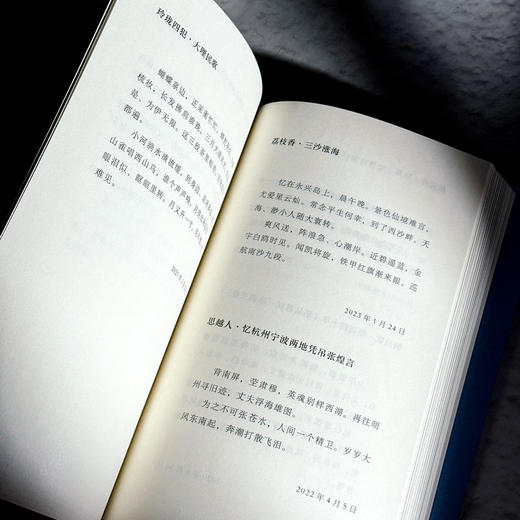 玲珑四犯·大理民歌
蝴蝶泉边，正茶蜜忙
梳妆，长发换鬟丧晚。三月
是、为伊无限。这三股
都遍。
小河淌水清琉璃，
山雀唱西山鸟，道个声声
眼泪似、眶眶里转。月又弄一弓，
难见。
荔枝香·三沙涨海
忆在永兴岛上，晨午晚，景色仙境难言，
尤爱星云灿。常念平生何幸，到了西沙畔。天
海、渺小人随大寰转。
爽风送，阵浪急、心潮岸。近碧遥蓝，金
宇白鸥时见。闻凯将旋，铁甲红旗渐来眼。巡
航南沙九段。
2023年1月24日
思越人·忆杭州宁波两地凭吊张煌言
背南屏，茔肃穆，英魂别样西湖。再往明
州寻旧迹，丈夫浮海雄图。
为之不可张苍水，人间一个精卫。岁岁大
风东南起，奔潮打散飞泪。
2022年4月5日